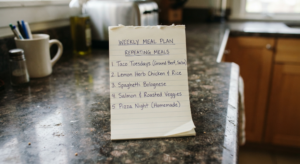 WEEKLY MEAL PLAN
REPEATING MEALS
1. Taco Tuesdays (Ground Beef,
2. Lemon Herb Chicken & Rice
3. Spaghetti Bolognese
4. Salmon & Roasted Veggies
5. Pizza Night (Homemade)